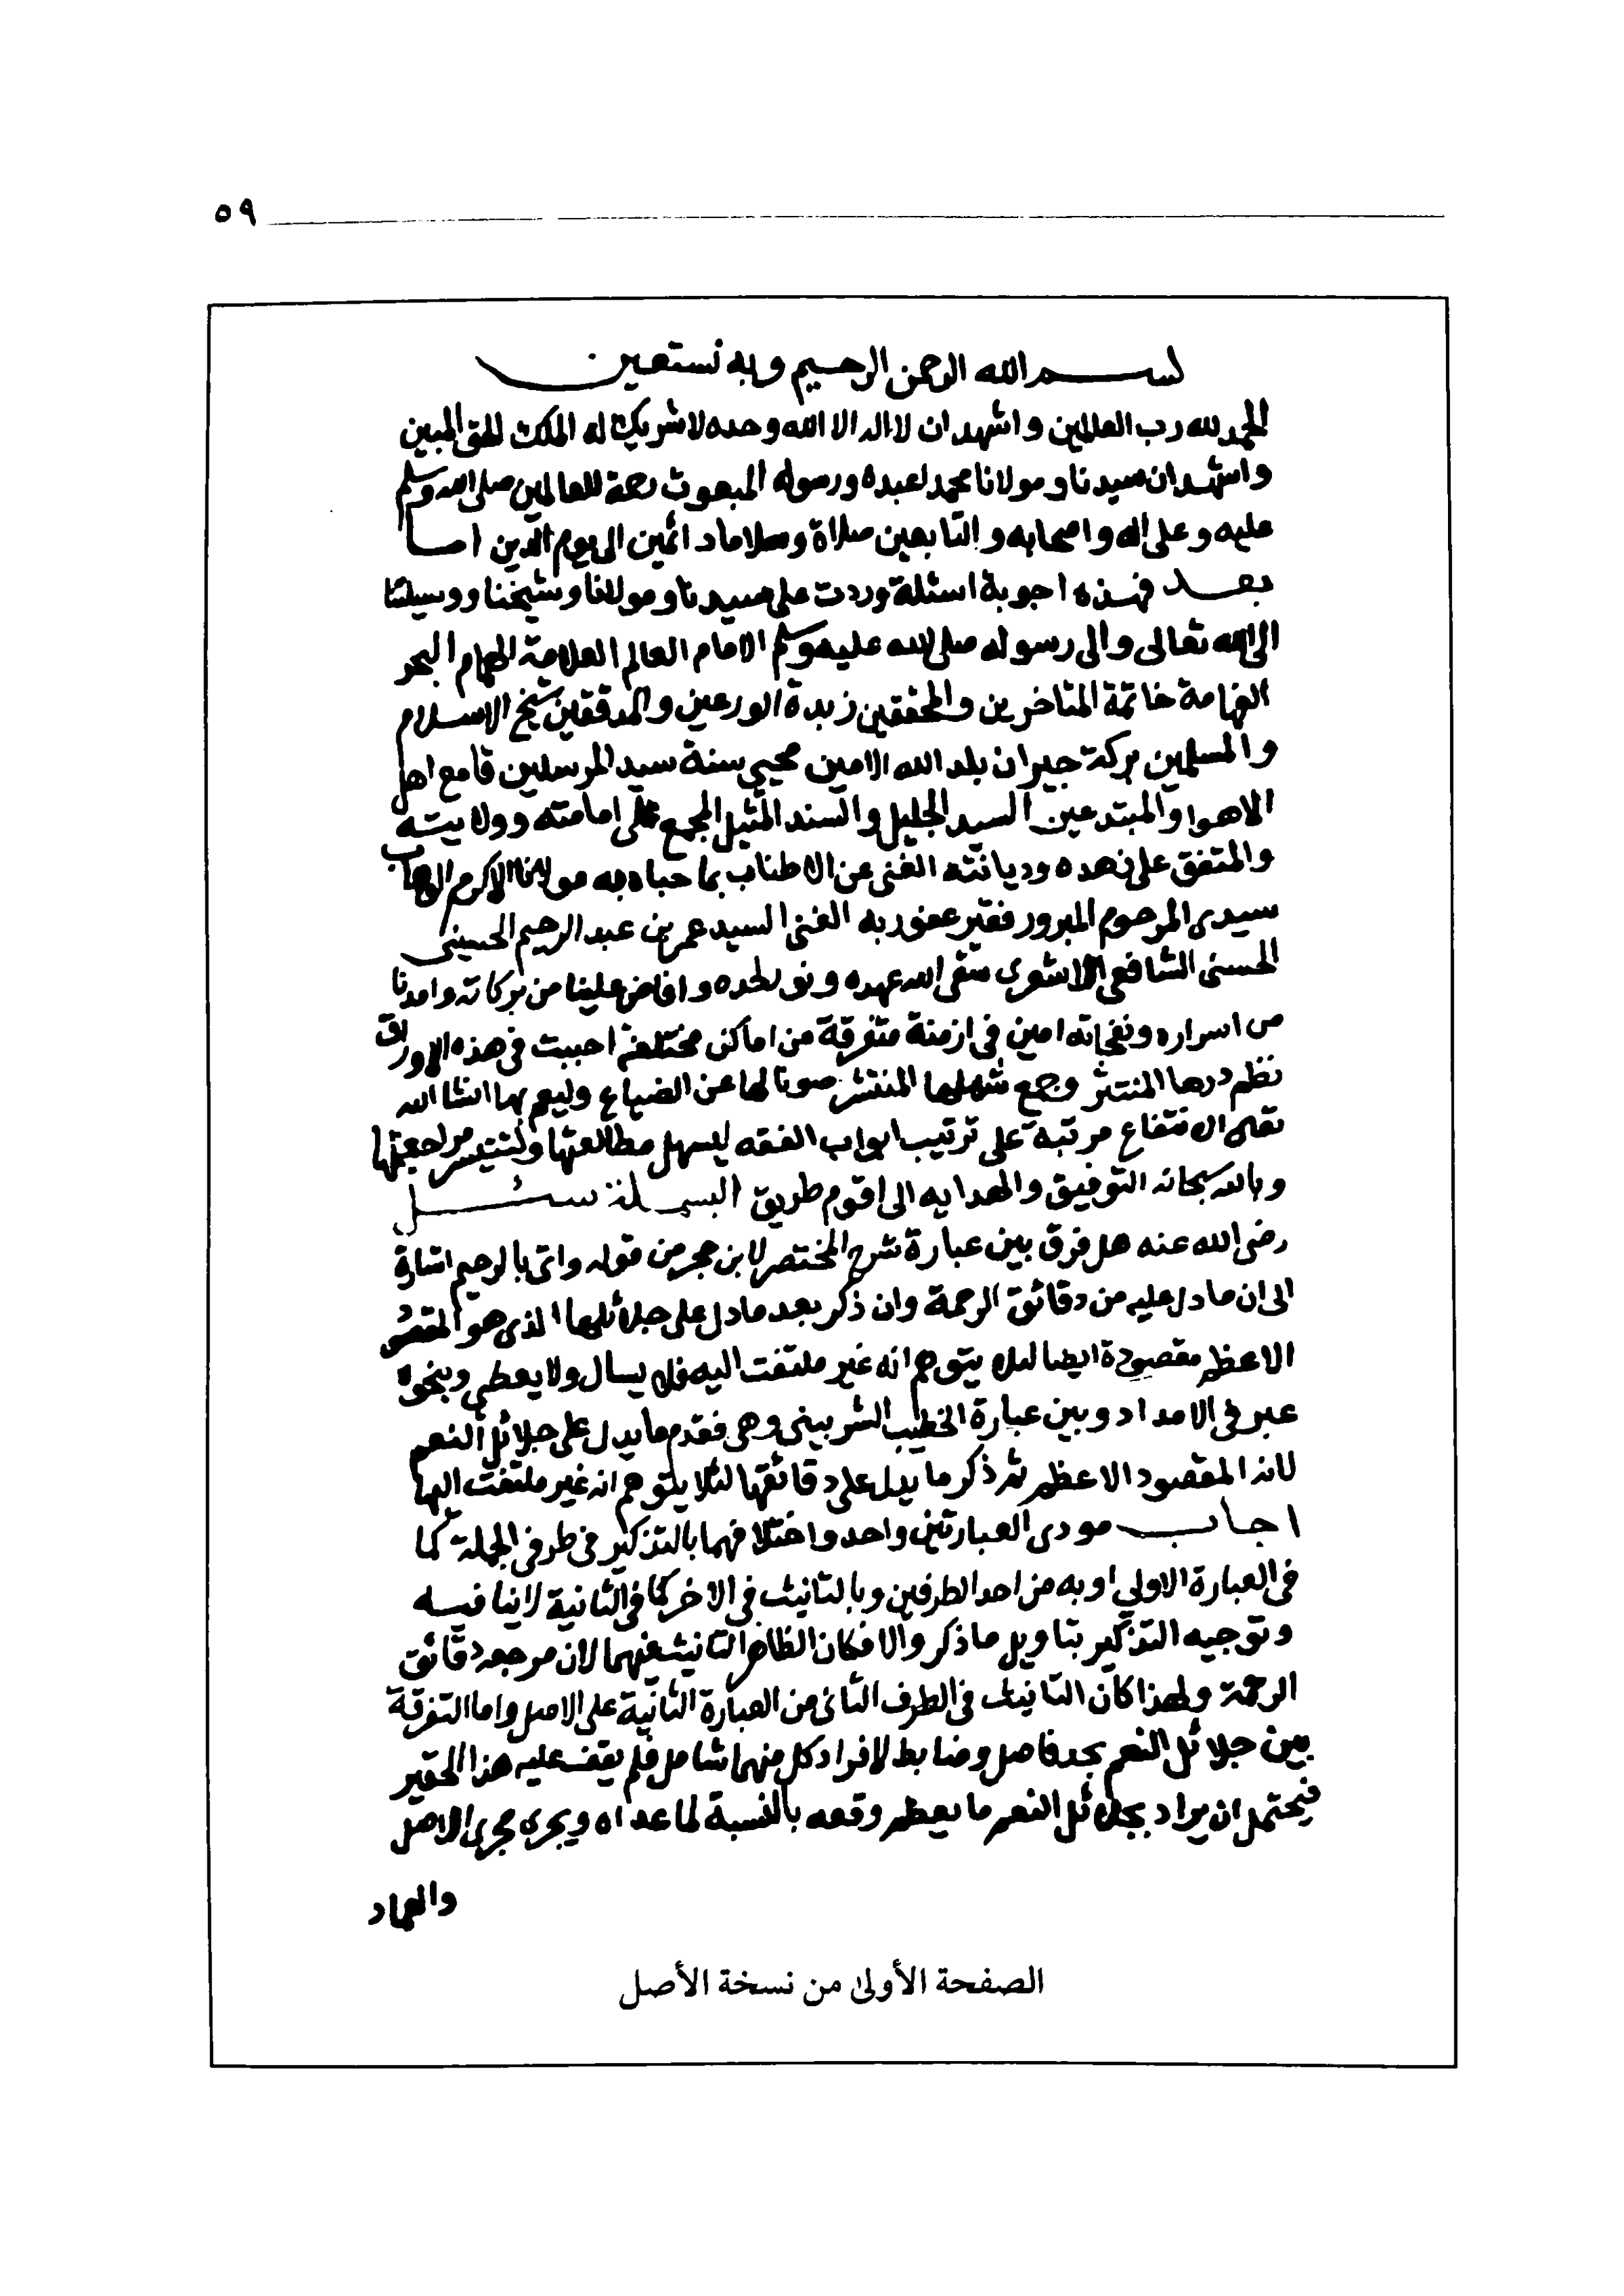 ٥٩
بسم الله الرحمن الرحيم وبه نستعين
الحمد لله رب العالمين واشهد ان لا اله الا الله وحده لا شريك له الملك الحق المبين
واشهد ان سيدنا ومولانا محمدا عبده ورسوله المبعوث رحمة للعالمين صلى الله وسلم
عليه وعلى اله واصحابه والتابعين صلاة وسلاما دائمين الى يوم الدين اما
بعد فهذه اجوبة اسئلة وردت على سيدنا ومولانا وشيخنا ووسيلتنا
الى الله تعالى والى رسوله صلى الله عليه وسلم الامام العالم العلامة الهمام البحر
الفهامة خاتمة المتاخرين والمحققين زبدة الورعين والمدققين شيخ الاسلام
والمسلمين بركة جيران بلد الله الامين محيي سنة سيد المرسلين قامع اهل
الاهوا والمبتدعين السيد الجليل والسند المثيل المجمع على امامته وولايته
والمتفق على زهده وديانته الغنى عن الاطناب بما حباه به مولانا الاكرم الوهاب
سيدى المرحوم المبرور فقير عفو ربه الغنى السيد عمر بن عبد الرحيم الحسينى
الحسنى الشافعى الاشعرى سقى الله عهده ونور لحده وافاض علينا من بركاته وامدنا
من اسراره ونفحاته امين فى ازمنة متفرقة من اماكن مختلفة احببت فى هذه الاوراق
نظم درها المنتثر وجمع شملها المنتشر صونا لها عن الضياع وليعم بها انشا الله
تعالى الانتفاع مرتبة على ترتيب ابواب الفقه ليسهل مطالعتها ولتتيسر مراجعتها
وبالله سبحانه التوفيق والهدايه الى اقوم طريق البسملة سئل
رضى الله عنه هل فرق بين عبارة شرح المختصر لابن حجر من قوله واتى بالرحيم اشارة
الى ان مادل عليه من دقائق الرحمة وان ذكر بعد مادل على جلائلها الذى هو المقصود
الاعظم مقصودة ايضا لئلا يتوهم انه غير ملتفت اليه فلا يسال ولا يعطى وبنحوه
عبر فى الامداد وبين عبارة الخطيب الشربينى وهى فقدم ما يدل على جلائل النعم
لانه المقصود الاعظم ثم ذكر ما يدل على دقائقها لئلا يتوهم انه غير ملتفت اليها
اجاب مودى العبارتين واحد واختلافهما بالتذكير فى طرفى الجملة كما
فى العبارة الاولى او به من احد الطرفين وبالتانيث فى الاخر كما فى الثانية لا ينافيه
وتوجيه التذكير بتاويل ما ذكر والا فكان الظاهر التانيث فيهما لان مرجعه دقائق
الرحمة ولهذا كان التانيث فى الطرف الثانى من العبارة الثانية على الاصل واما التفرقة
بين جلائل النعم بحد فاصل وضابط لافراد كل منهما شامل فلم يقف عليه هذا الحقير
فيحتمل ان يراد بجلائل النعم ما يعظم وقعه بالنسبة لما عداه ويجرى مجرى الاصل
والعماد
الصفحة الأولى من نسخة الأصل